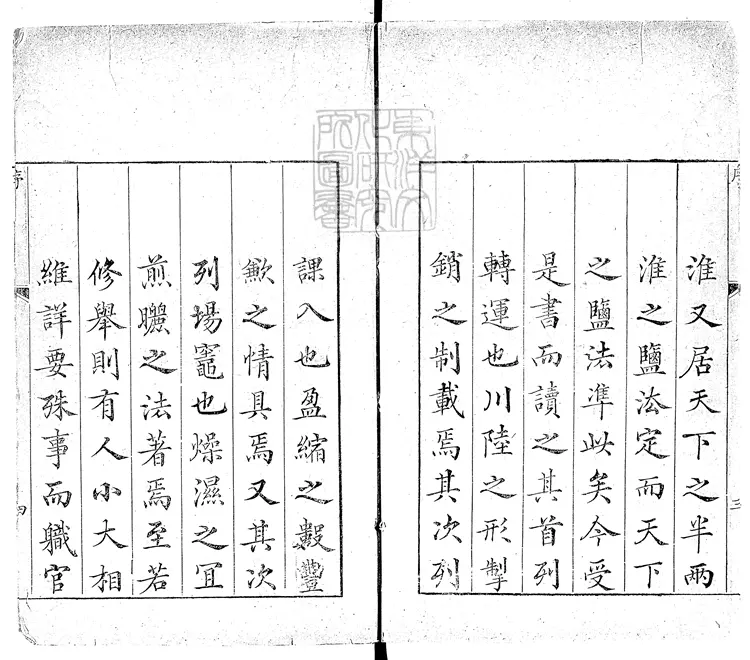 序
淮又居天下之半兩
淮之鹽法定而天下
之鹽法準此矣今受
是書而讀之其首列
轉運也川陸之形掣
銷之制載焉其次列
三
課入也盈縮之數豐
歉之情具焉又其次
列場竈也燥濕之宜
煎曬之法著焉至若
修舉則有人小大相
維詳要殊事而職官
序
四